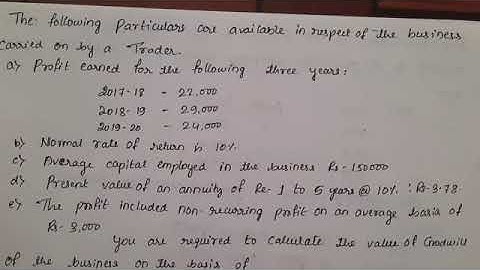 The: following Particulars are available in respect of the business
Carried on by a Trader.
a) Profit earned for the following three years:
2017-18 - 22,000
2018-19 - 29,000
2019-20 - 24,000
b) Normal rate of return is 10%
c) Average capital employed in the business Rs-150000
d) Present value of an annuity of Re-1 to 5 years @ 10% : Rs-3.78.
e) The profit included non-recurring profit on an average basis of
Rs- 3,000
you are required to calculate the value of Goodwill
of the business on the basis of